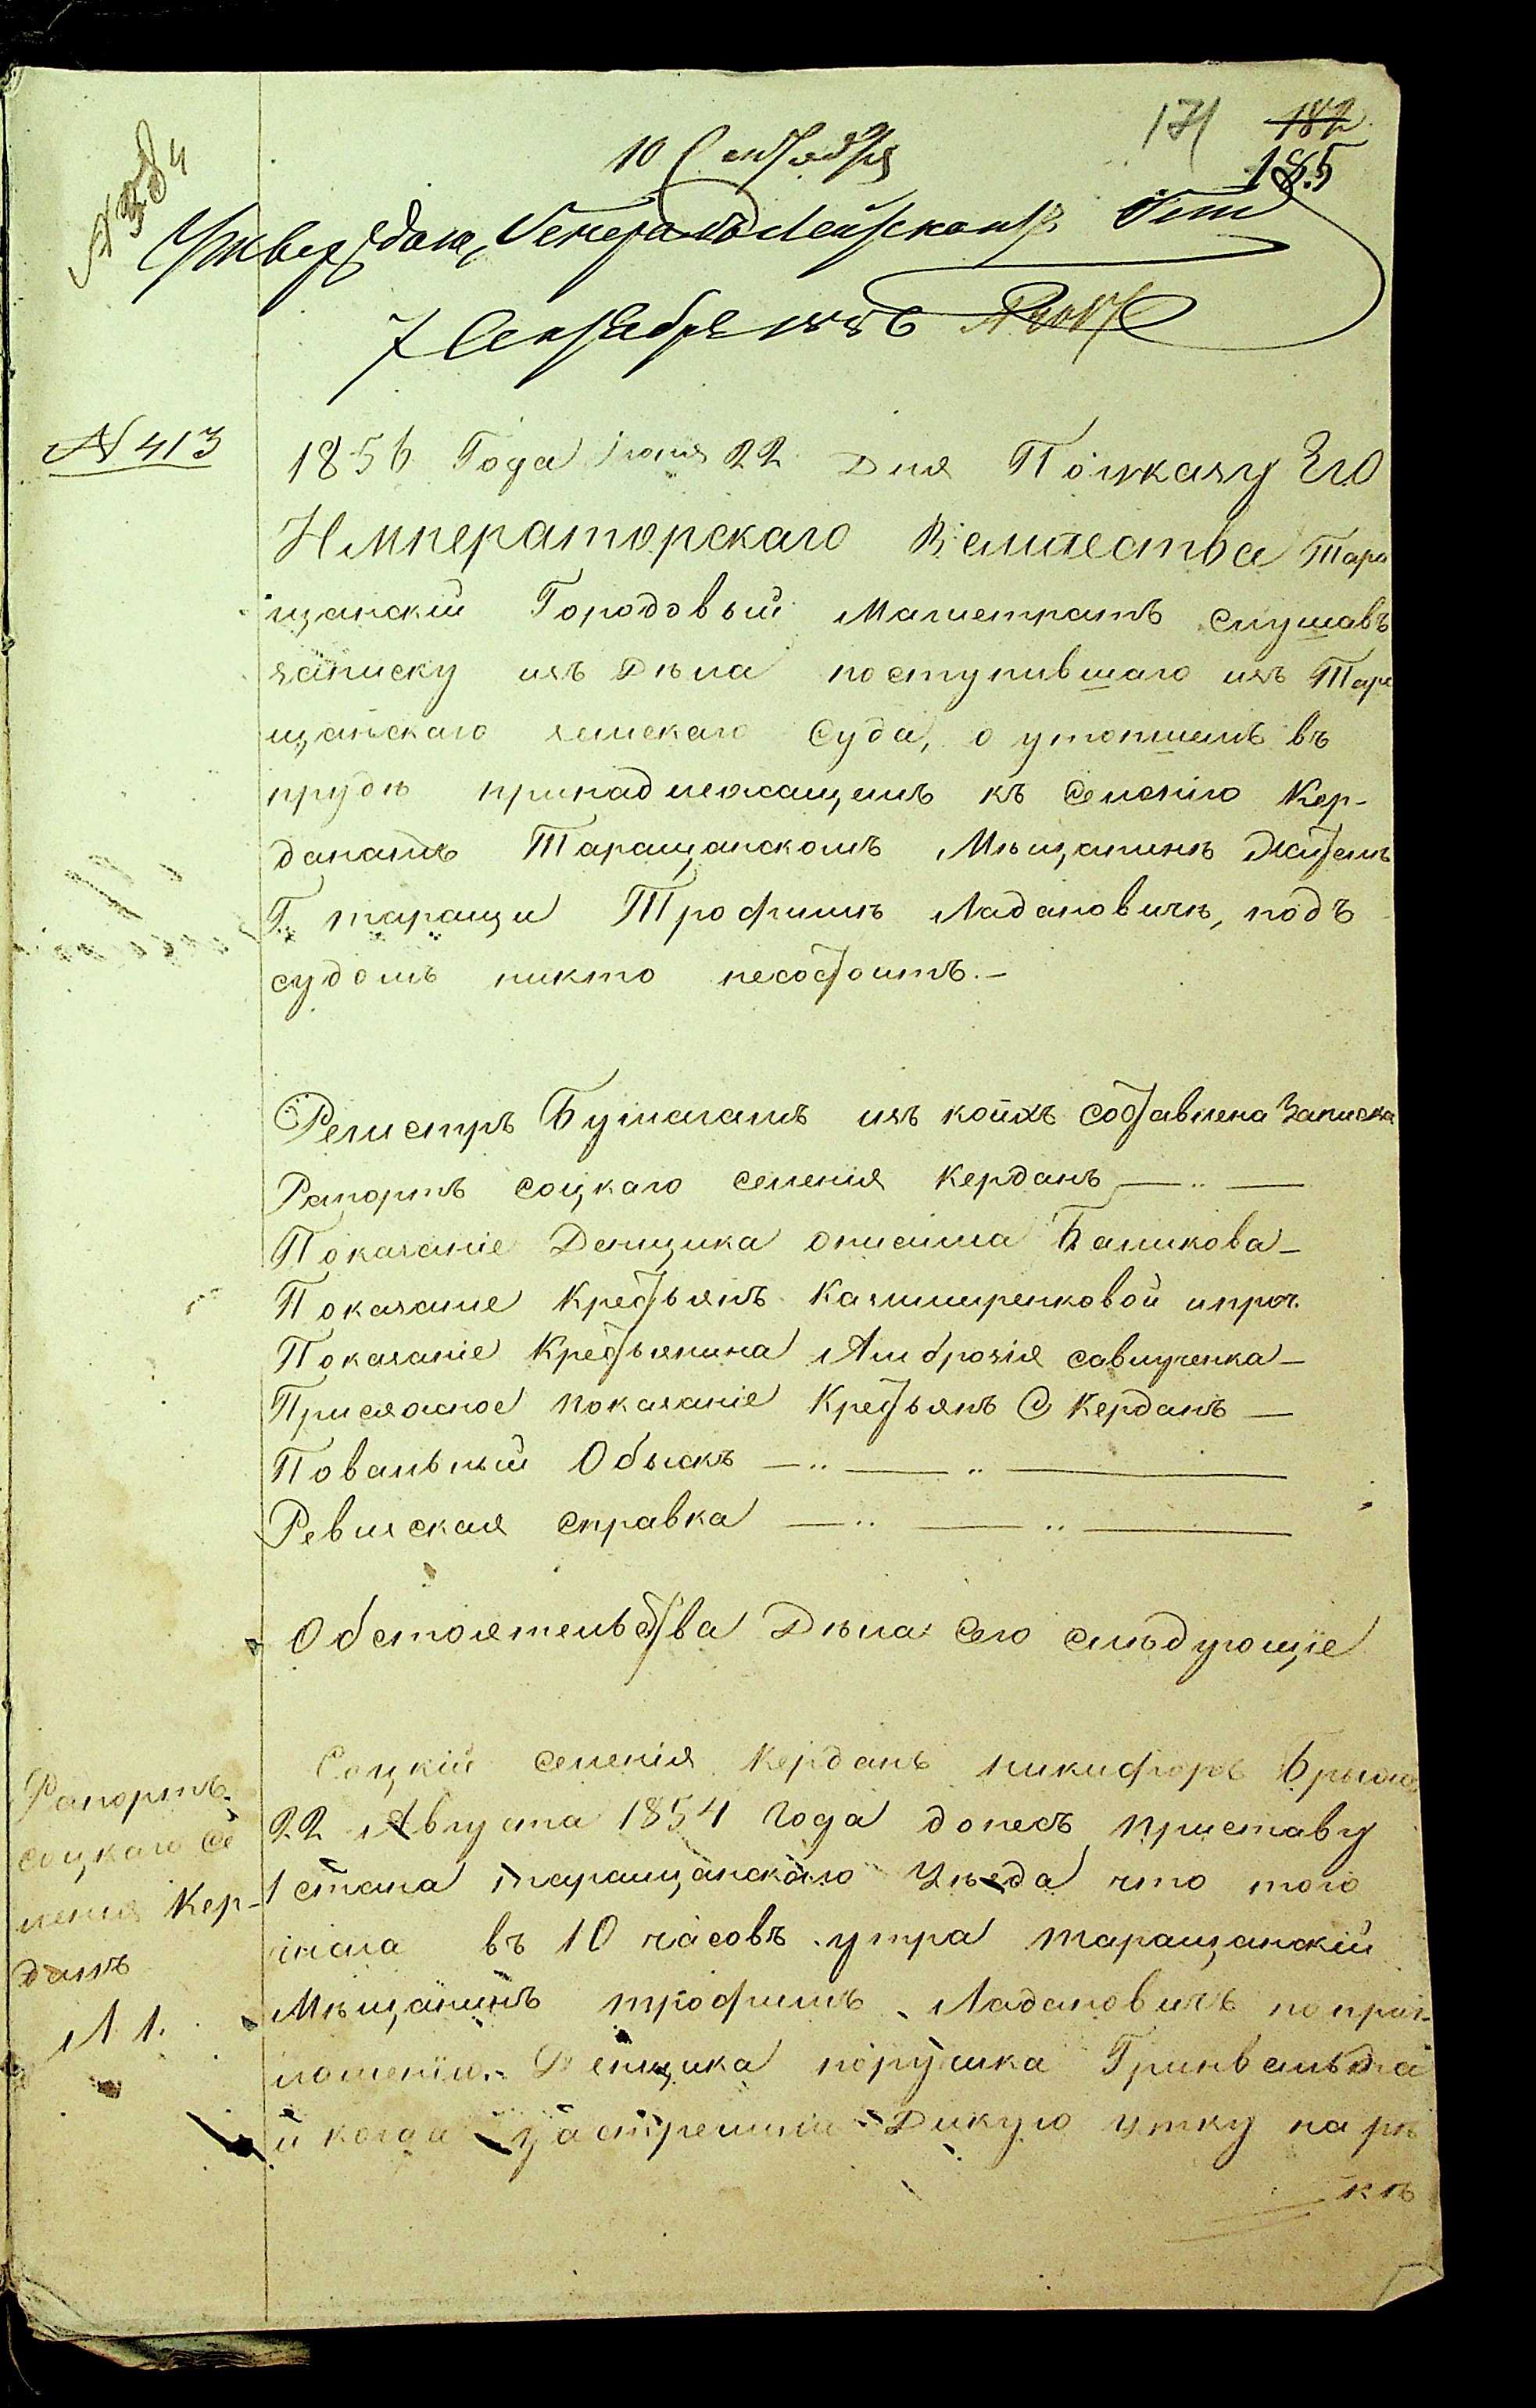 171 182
185
10 Сентября
7 Сентября 1856
N 413
1856 Года Iюля 22 Дня По указу Его
Императорскаго Величества Тара
щанскій Городовый Магистратъ слушавъ
записку изъ дѣла поступившаго изъ Тара
щанскаго земскаго Суда, о утопшемъ въ
прудѣ принадлежащемъ къ Селенію Кер-
данамъ Таращанскомъ Мѣщанинѣ жителѣ
Г. таращи Трофимѣ Ладановичѣ, подъ
судомъ никто несостоитъ.—
Регистръ Бумагамъ изъ коихъ составлена Записка
Рапортъ соцкаго селенія Керданъ
Показаніе Денщика онисима Баликова
Показаніе Крестьянъ Казимиренковой ипроч.
Показаніе Крестьянина Амброзія савщченка
Присяжное показаніе Крестьянъ С Керданъ
Повальный Обыскъ
Ревизская справка
Обстоятельства Дѣла сего слѣдующіе
Рапортъ
соцкаго се
ленія Кер-
данъ
Л 1.
Соцкій селенія Керданъ никифоръ
22 Августа 1854 года донесъ приставу
1 стана таращанскаго Уѣзда что того
числа въ 10 часовъ утра таращанскій
Мѣщанинъ трофимъ Ладановичъ по приг-
лошенію Денщика порутчика Гринвальда
и когда застрелили Дикую утку на рѣ
кѣ